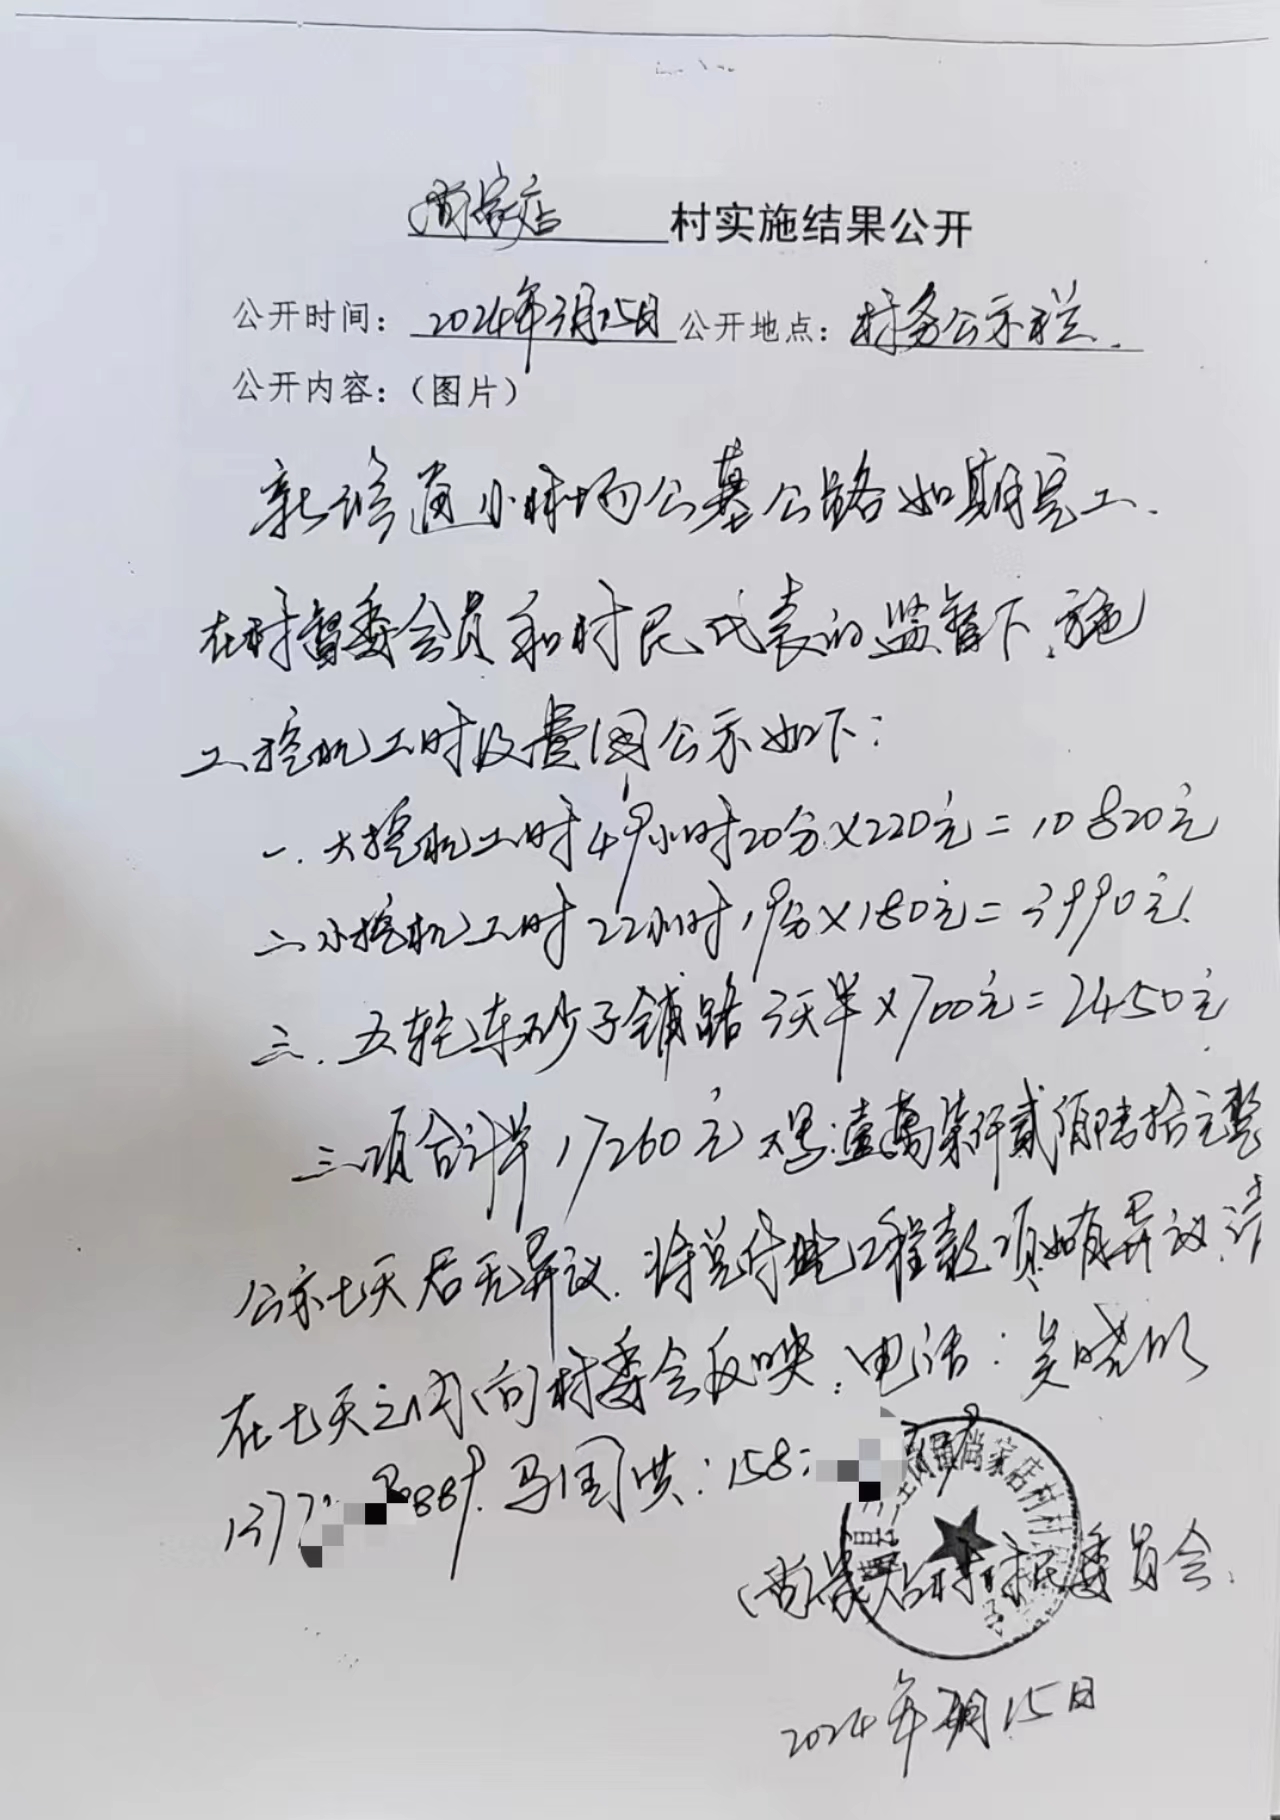 尚家店村实施结果公开
公开时间：2024年3月15日 公开地点：村务公示栏.
公开内容：（图片）
新修通小林场公墓公路如期完工.
在村督委会员和村民代表的监督下.施
工挖机工时及费用公示如下：
一.大挖机工时49小时20分×220元=10820元
二.小挖机工时22小时19分×180元=3990元.
三.五轮车砂子铺路3天半×700元=2450元
三项合计 17260元 大写：壹萬柒仟贰佰陆拾元整
公示七天后无异议.将兑付此工程款项.如有异议.请
在七天之内向村委会反映.电话：吴晓
1377 88 马国洪：158
尚家店村村民委员会.
尚家店村村
2024年3月15日